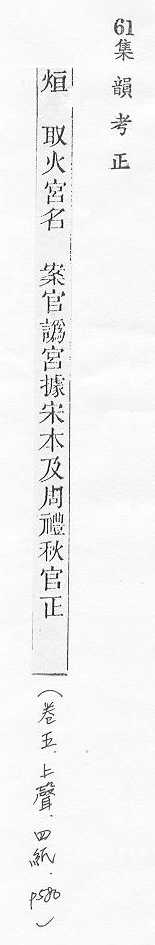 61集韻考正
烜 取火宮名 案官譌宮據宋本及周禮秋官正
（卷五.上聲.四紙.P580）